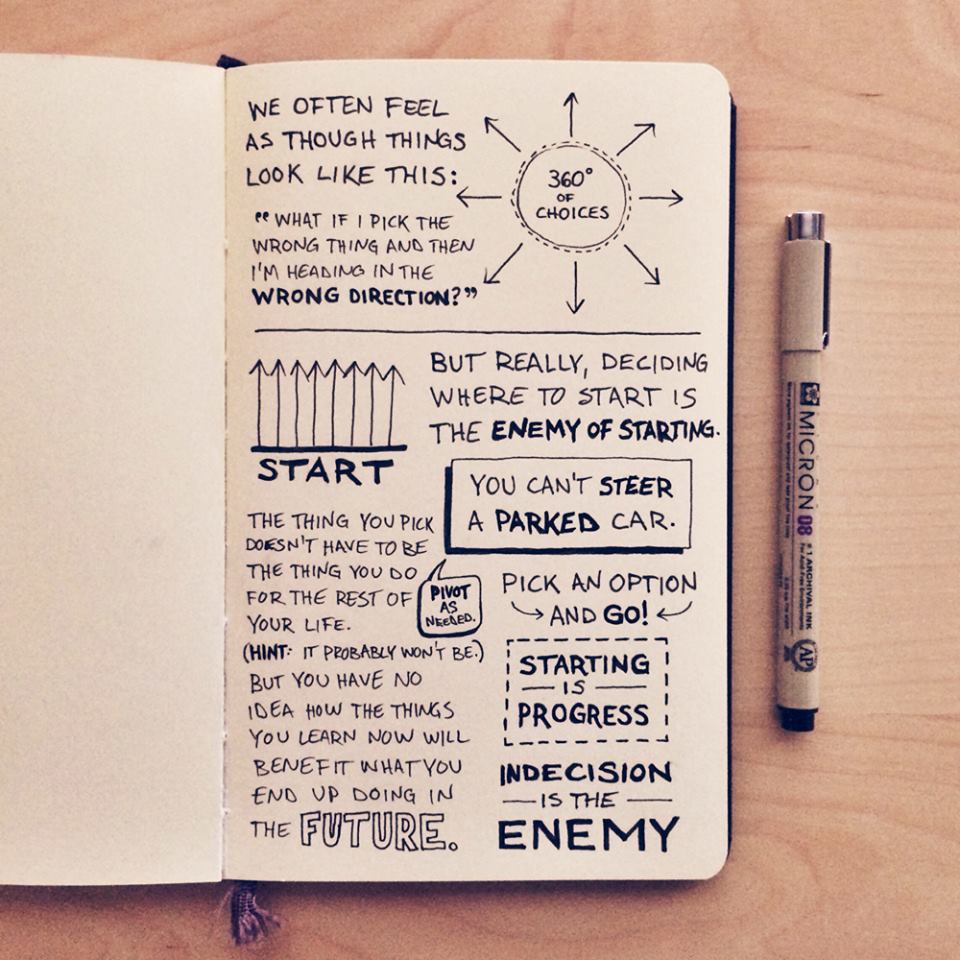 WE OFTEN FEEL
AS THOUGH THINGS
LOOK LIKE THIS:
360°
OF
CHOICES
"WHAT IF I PICK THE
WRONG THING AND THEN
I'M HEADING IN THE
WRONG DIRECTION?"
START
BUT REALLY, DECIDING
WHERE TO START IS
THE ENEMY OF STARTING.
YOU CAN'T STEER
A PARKED CAR.
THE THING YOU PICK
DOESN'T HAVE TO BE
THE THING YOU DO
FOR THE REST OF
YOUR LIFE.
(HINT: IT PROBABLY WON'T BE.)
BUT YOU HAVE NO
IDEA HOW THE THINGS
YOU LEARN NOW WILL
BENEFIT WHAT YOU
END UP DOING IN
THE FUTURE.
PIVOT
AS
NEEDED.
PICK AN OPTION
AND GO!
STARTING
IS
PROGRESS
INDECISION
IS THE
ENEMY
MICRON 08
#1 ARCHIVAL INK
AP